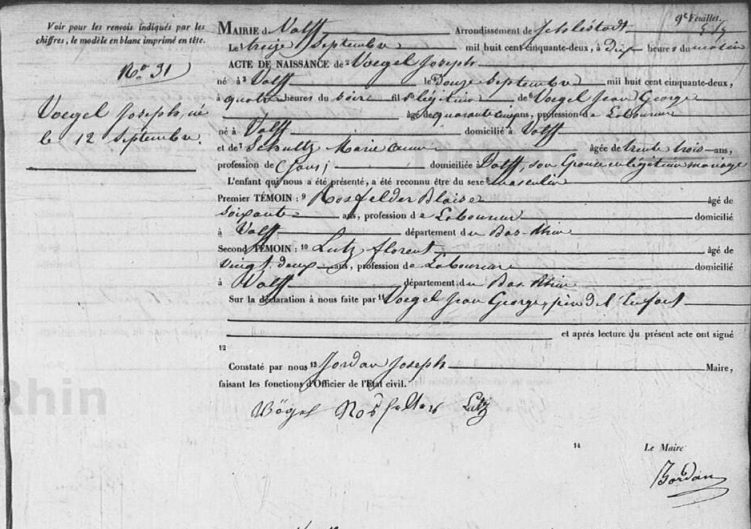 Voir pour les renvois indiqués par les
chiffres, le modèle en blanc imprimé en tête.
No 31
Voegel Joseph, né
le 12 Septembre.
9e Feuillet
MAIRIE d Valff Arrondissement de Schlestadt
Le treize Septembre mil huit cent cinquante-deux, à dix heures du matin
ACTE DE NAISSANCE de Voegel Joseph
né à Valff le Douze Septembre mil huit cent cinquante-deux,
à quatre heures du soir fils légitime de Voegel Jean George
âgé de quarante cinq ans, profession de Laboureur
né à Valff domicilié à Valff
et de Schultz Marie anne âgée de trente trois ans,
profession de (sans) domiciliée Valff, son épouse en légitime mariage
L'enfant qui nous a été présenté, a été reconnu être du sexe masculin
Premier TÉMOIN : 9 Rosfelder Blaise âgé de
soixante ans, profession d e Laboureur domicilié
à Valff département du Bas-Rhin
Second TÉMOIN : 10 Lutz florent âgé de
vingt deux ans, profession d e Laboureur domicilié
à Valff département du Bas Rhin
Sur la déclaration à nous faite par 11 Voegel Jean George, père de l'Enfant
et après lecture du présent acte ont signé
12
Constaté par nous 13 Jordan Joseph Maire,
faisant les fonctions d'Officier de l'État civil.
Vögel Rosfelder Lutz
14 Le Maire
Jordan
Rhin